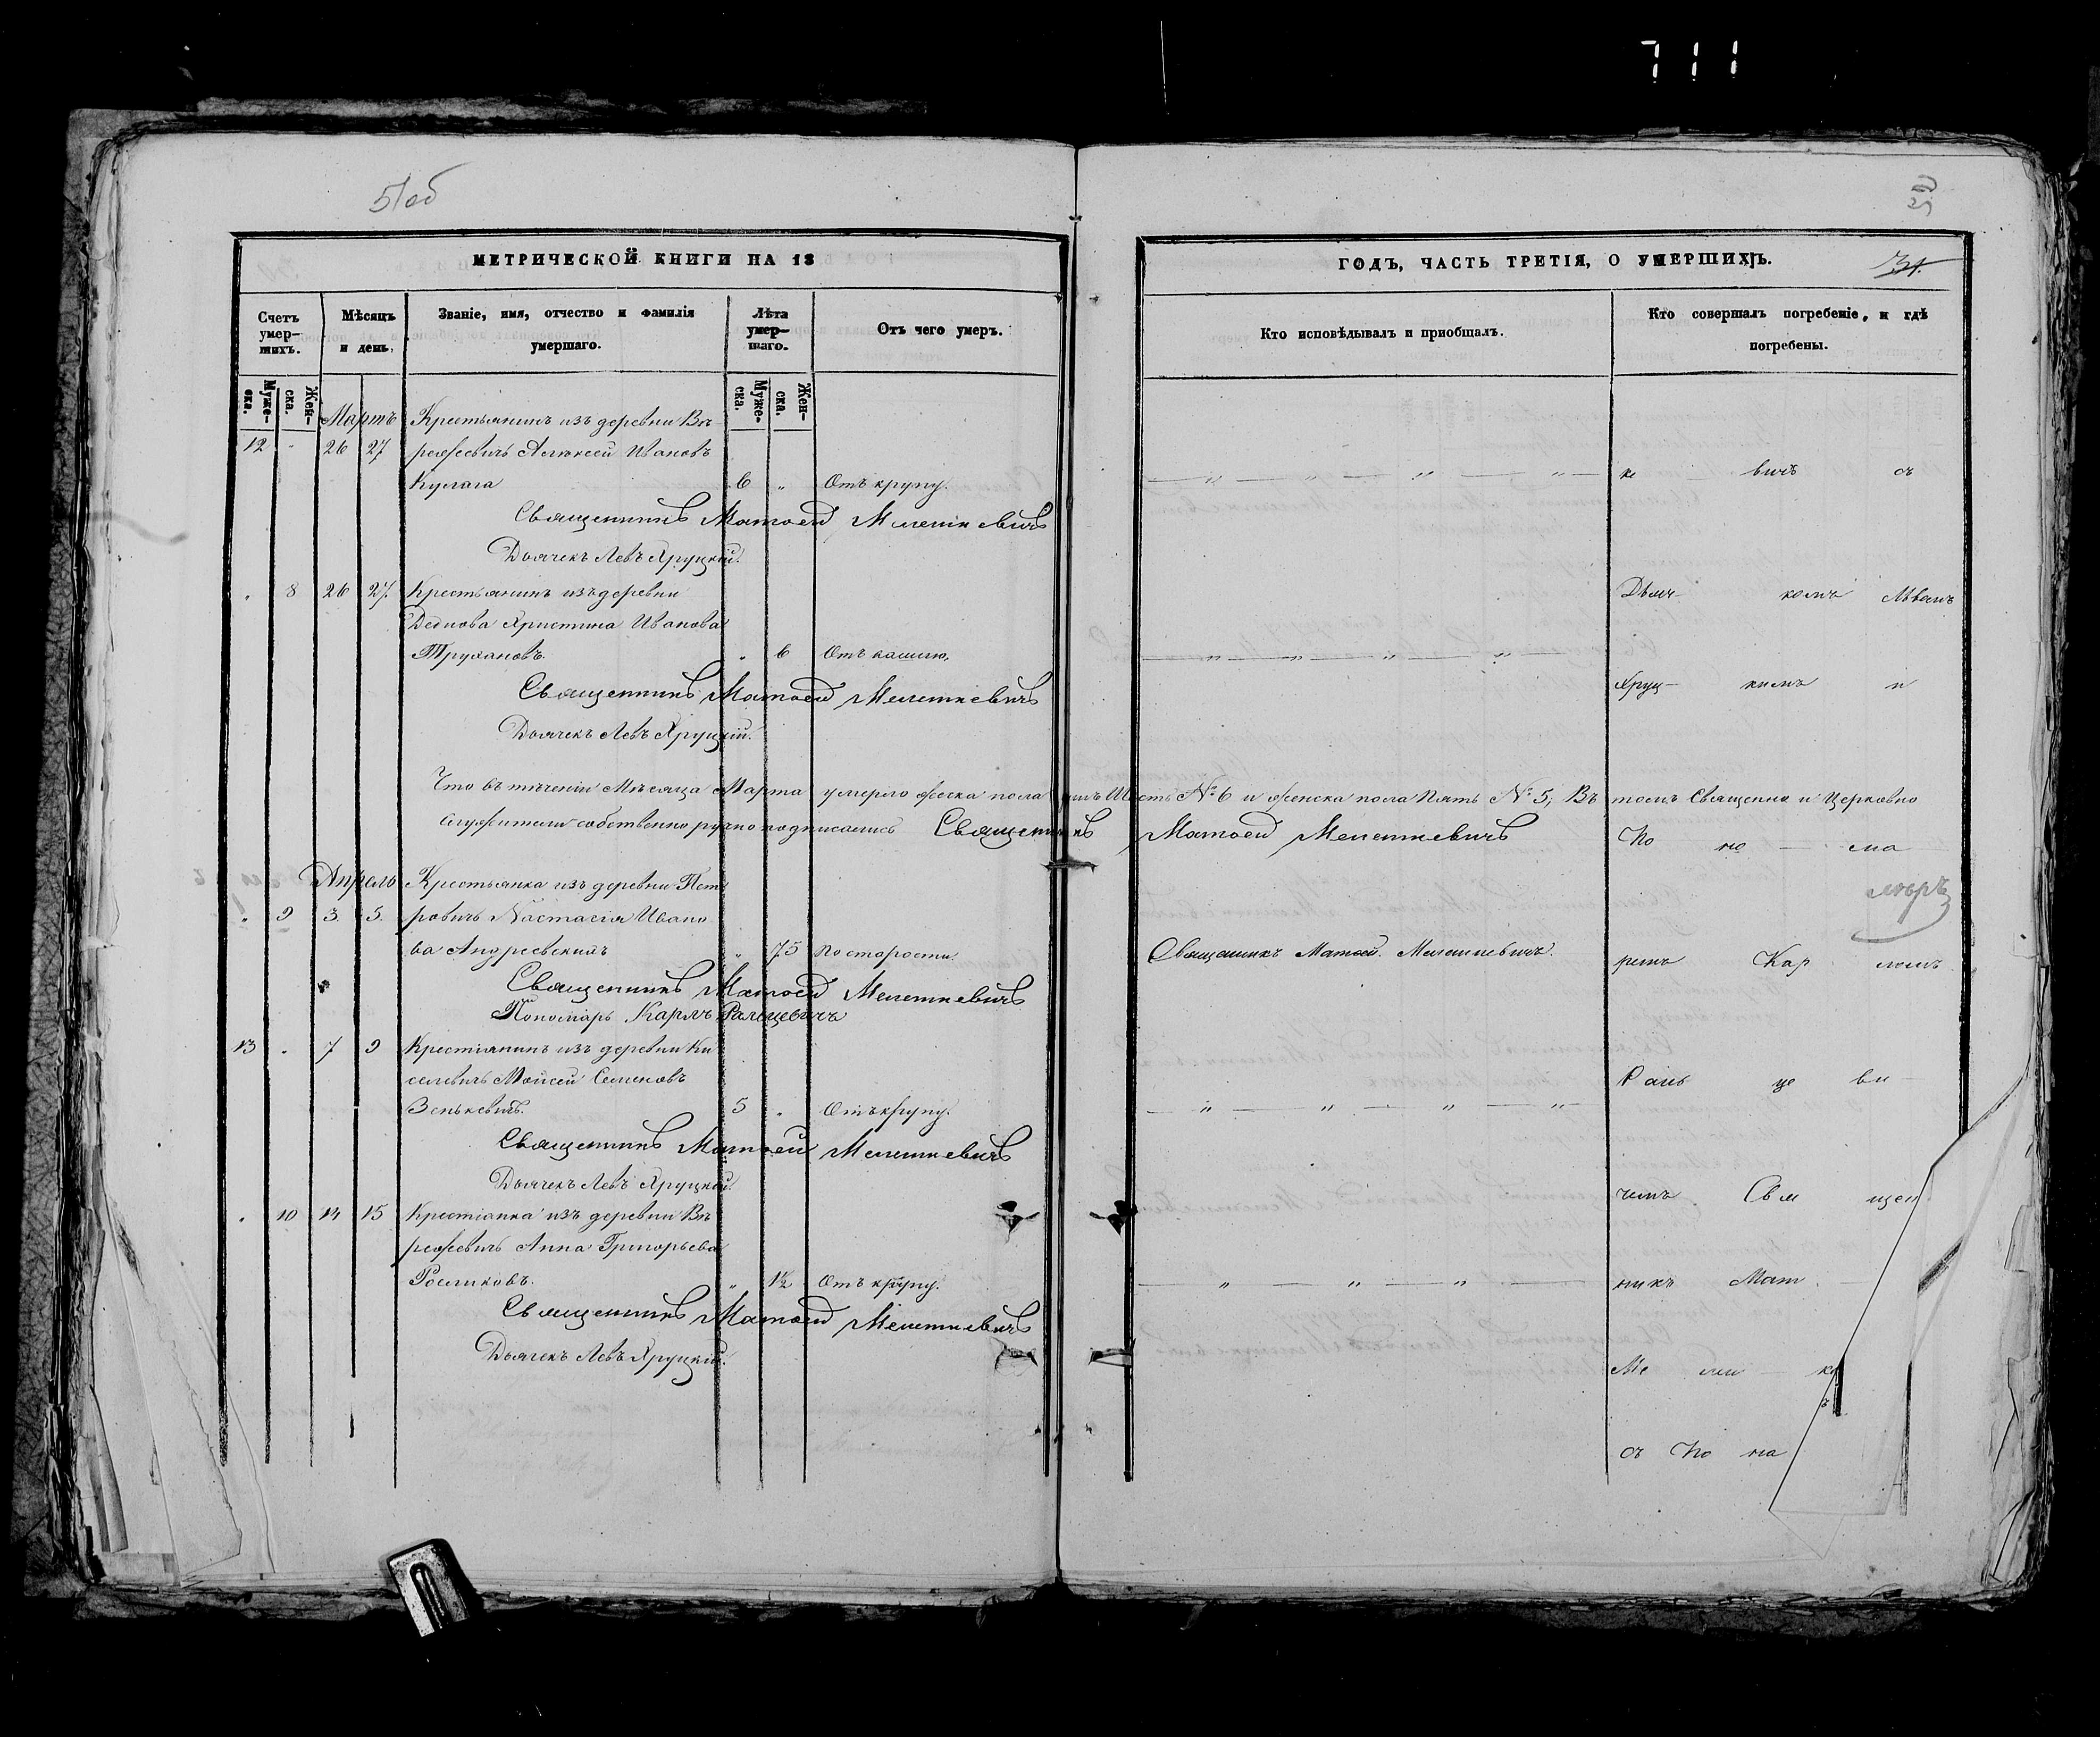 711
51об
52
МЕТРИЧЕСКОЙ КНИГИ НА 18
ГОДЪ, ЧАСТЬ ТРЕТІЯ, О УМЕРШИХЪ.
31.
Счетъ умер-шихъ.
Муже-ска.
Жен-ска.
Мѣсяцъ и день.
Званіе, имя, отчество и фамилія умершаго.
Лѣта умер-шаго.
Муже-ска.
Жен-ска.
Отъ чего умеръ.
Кто исповѣдывалъ и пріобщалъ.
Кто совершалъ погребеніе, и гдѣ погребены.
Мартъ Крестьянинъ изъ деревни Ве
12 " 26 27 режевичь Алексей Ивановъ
Кулага 6 " Отъ крупу.
Священникъ Матвей Мелешкевичъ
Дьячекъ Левъ Хруцкій.
" 8 26 27. Крестьянинъ изъ деревни
Деднова Христина Иванова
Трухановъ. " 6 Отъ кашлю,
Священникъ Матвей Мелешкевичъ
Дьячекъ Левъ Хруцкій.
Что въ теченіи Мѣсяца Марта умерло жеска пола Шесть № 6 и женска пола Пять № 5, Въ томъ Священно и Церковно
служители собственно ручно подписались Священникъ Матвей Мелешкевичъ
Апрель Крестьянка изъ деревни Пет
" 9 3. 5. ровичь Настасія Ивано
ва Андреевскихъ " 75 По старости. Священникъ Матвей Мелешкевичъ.
Священникъ Матвей Мелешкевичъ
Пономарь Карлъ Ральцевичъ
13 " 7 9 Крестіянинъ изъ деревни Ки
селевичь Мойсей Семеновъ
Зенькевичъ. 5 " Отъ крупу.
Священникъ Матвей Мелешкевичъ
Дьячекъ Левъ Хруцкій.
" 10 14 15 Крестіанка изъ деревни Ве
режевичь Анна Григорьева
Росликовъ. " 1½ Отъ крупу.
Священникъ Матвей Мелешкевичъ
Дьячекъ Левъ Хруцкій.
ке вичъ съ
Дьяч- комъ Львомъ
Хруц- кимъ и
По но - ма
ремъ Кар ломъ
Раль це ви
чемъ. Свя щен
никъ Мат
Ме ле
съ По но